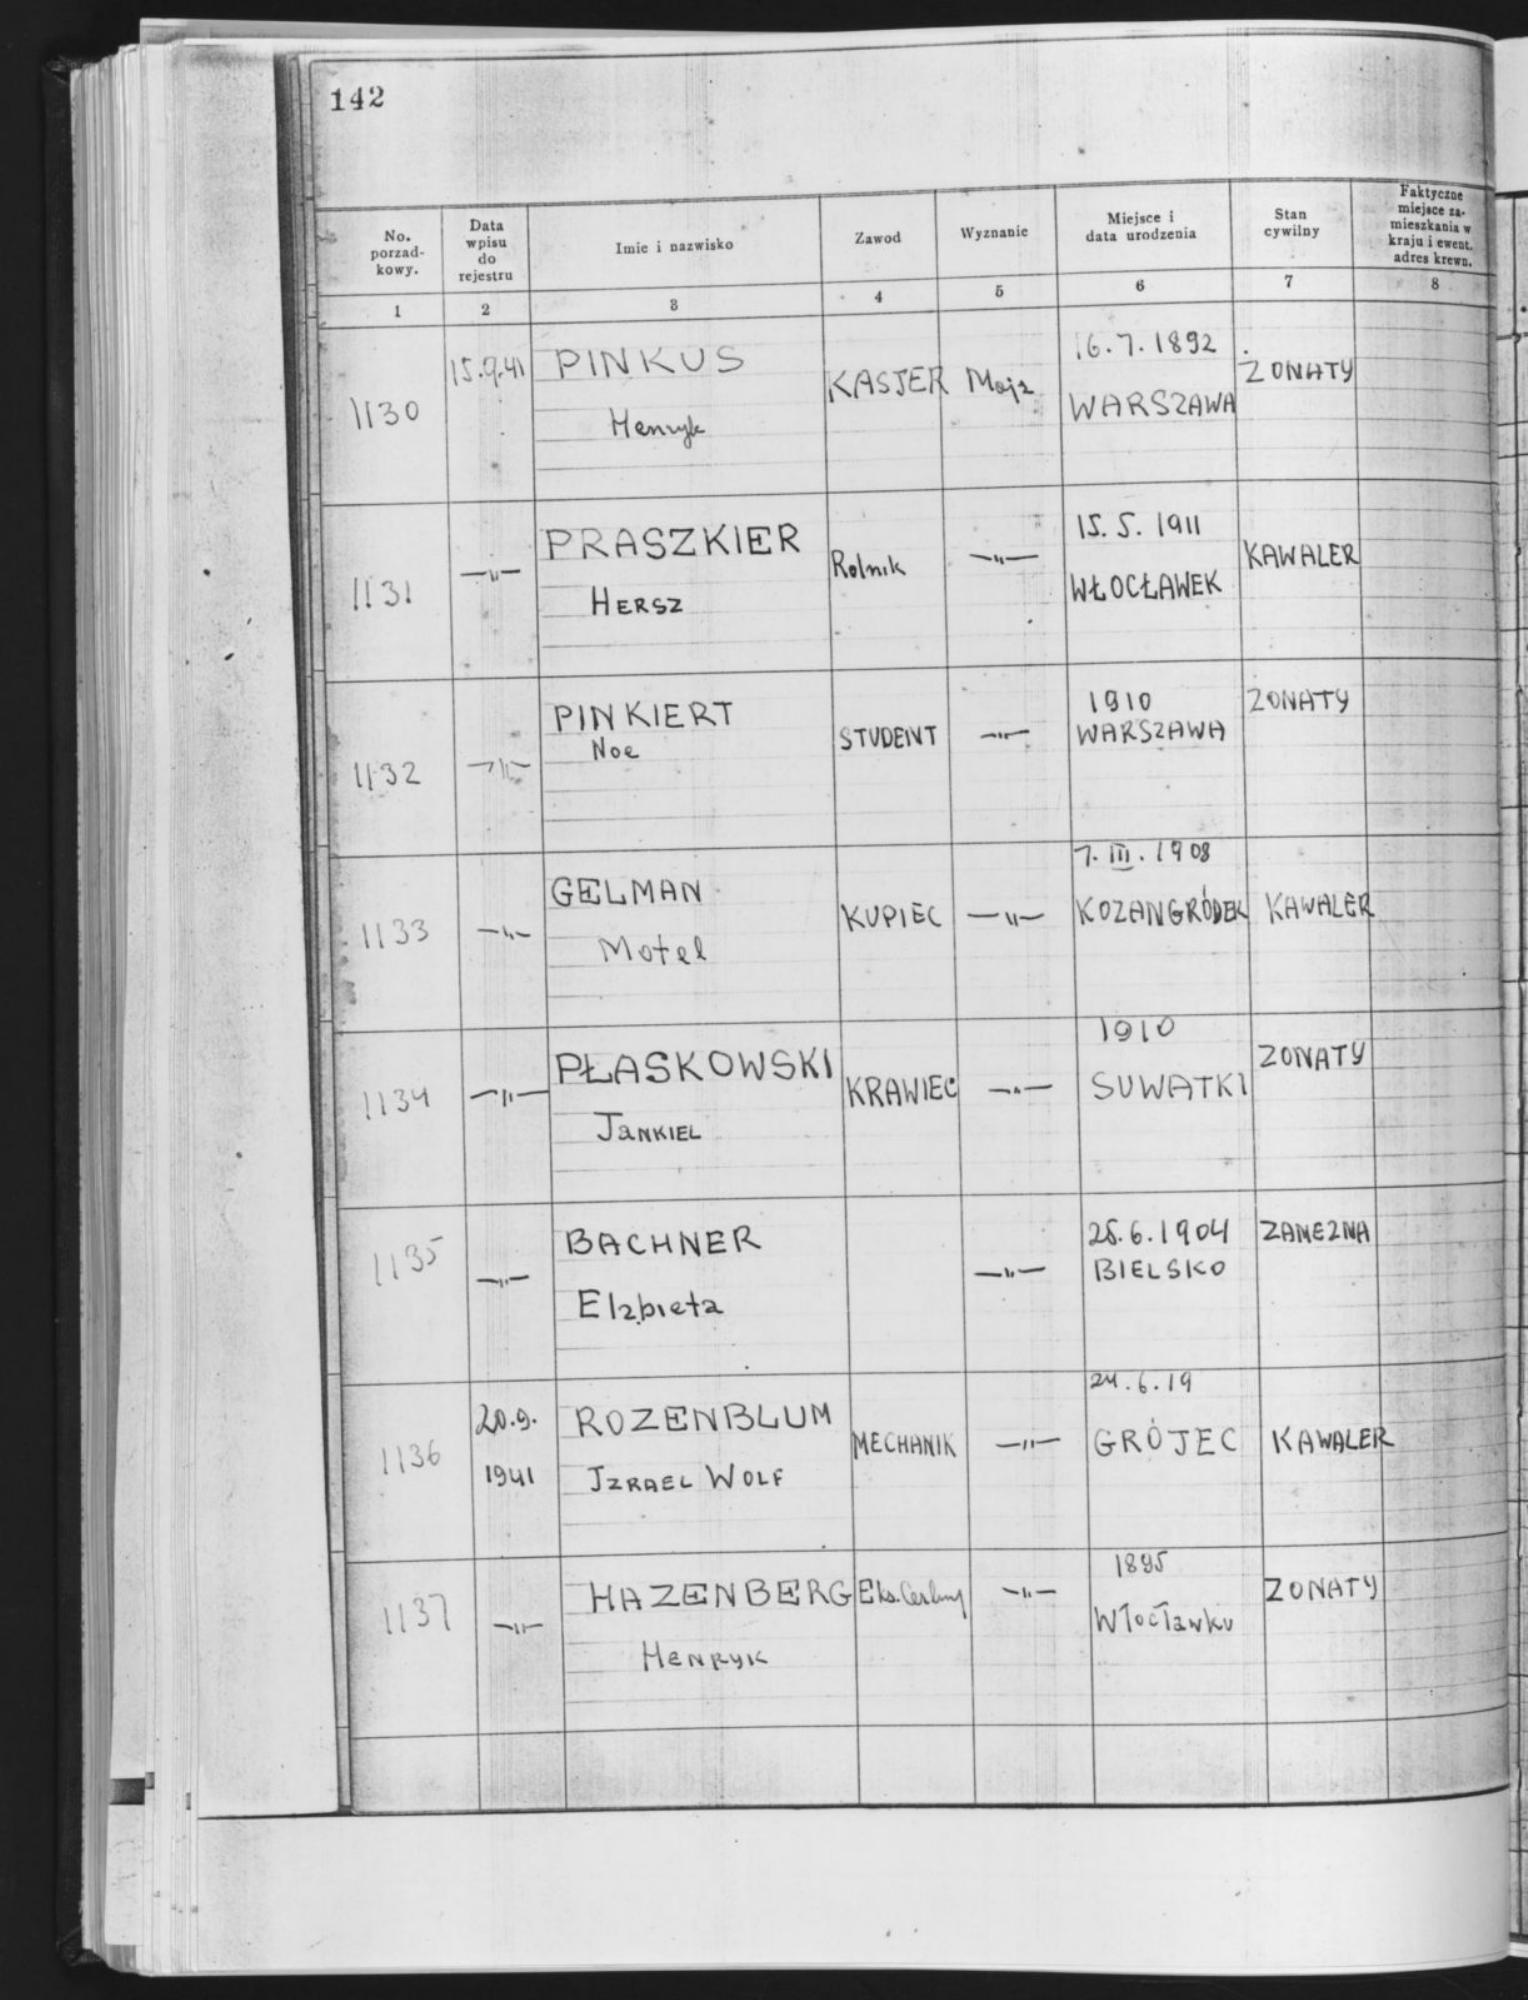 142
No. porzad- kowy.
Data wpisu do rejestru
Imie i nazwisko
Zawod
Wyznanie
Miejsce i data urodzenia
Stan cywilny
Faktyczne miejsce za- mieszkania w kraju i ewent. adres krewn.
1 2 3 4 5 6 7 8
1130 15.9.41 PINKUS Henryk KASJER Mojż 16.7.1892 WARSZAWA ŻONATY
1131 —"— PRASZKIER HERSZ Rolnik —"— 15.5.1911 WŁOCŁAWEK KAWALER
1132 —"— PINKIERT Noe STUDENT —"— 1910 WARSZAWA ZONATY
1133 —"— GELMAN Motel KUPIEC —"— 7.III.1908 KOZANGRÓDEK KAWALER
1134 —"— PŁASKOWSKI JANKIEL KRAWIEC —"— 1910 SUWAŁKI ZONATY
1135 —"— BACHNER Elzbieta —"— 28.6.1904 BIELSKO ZAMEZNA
1136 20.9. 1941 ROZENBLUM IZRAEL WOLF MECHANIK —"— 24.6.19 GRÓJEC KAWALER
1137 —"— HAZENBERG HENRYK —"— 1895 Włocławku ZONATY